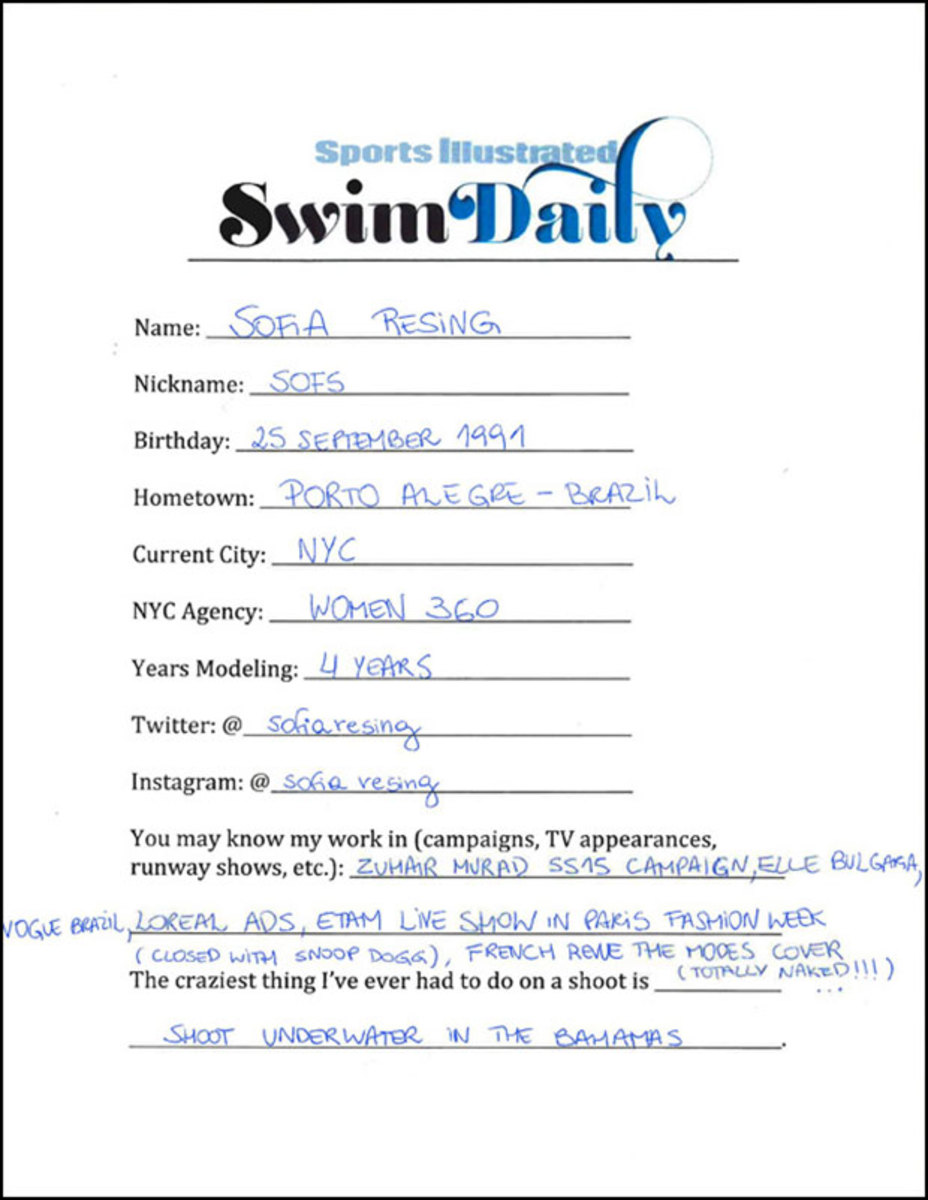 Sports Illustrated
Swim Daily
Name: SOFiA RESiNG
Nickname: SOFS
Birthday: 25 SEPTEMBER 1991
Hometown: PORTO ALEGRE – BRAZiL
Current City: NYC
NYC Agency: WOMEN 360
Years Modeling: 4 YEARS
Twitter: @ sofiaresing
Instagram: @ sofia resing
You may know my work in (campaigns, TV appearances,
runway shows, etc.): ZUHAIR MURAD SS15 CAMPAIGN, ELLE
VOGUE BRAZIL, LOREAL ADS, ETAM LiVE SHOW iN PARiS FASHiON WEEK
(CLOSED WiTH SNOOP DOGG), FRENCH THE MODES COVER
(TOTALLY NAKED!!!)
The craziest thing I've ever had to do on a shoot is ...
SHOOT UNDERWATER IN THE BAHAMAS.